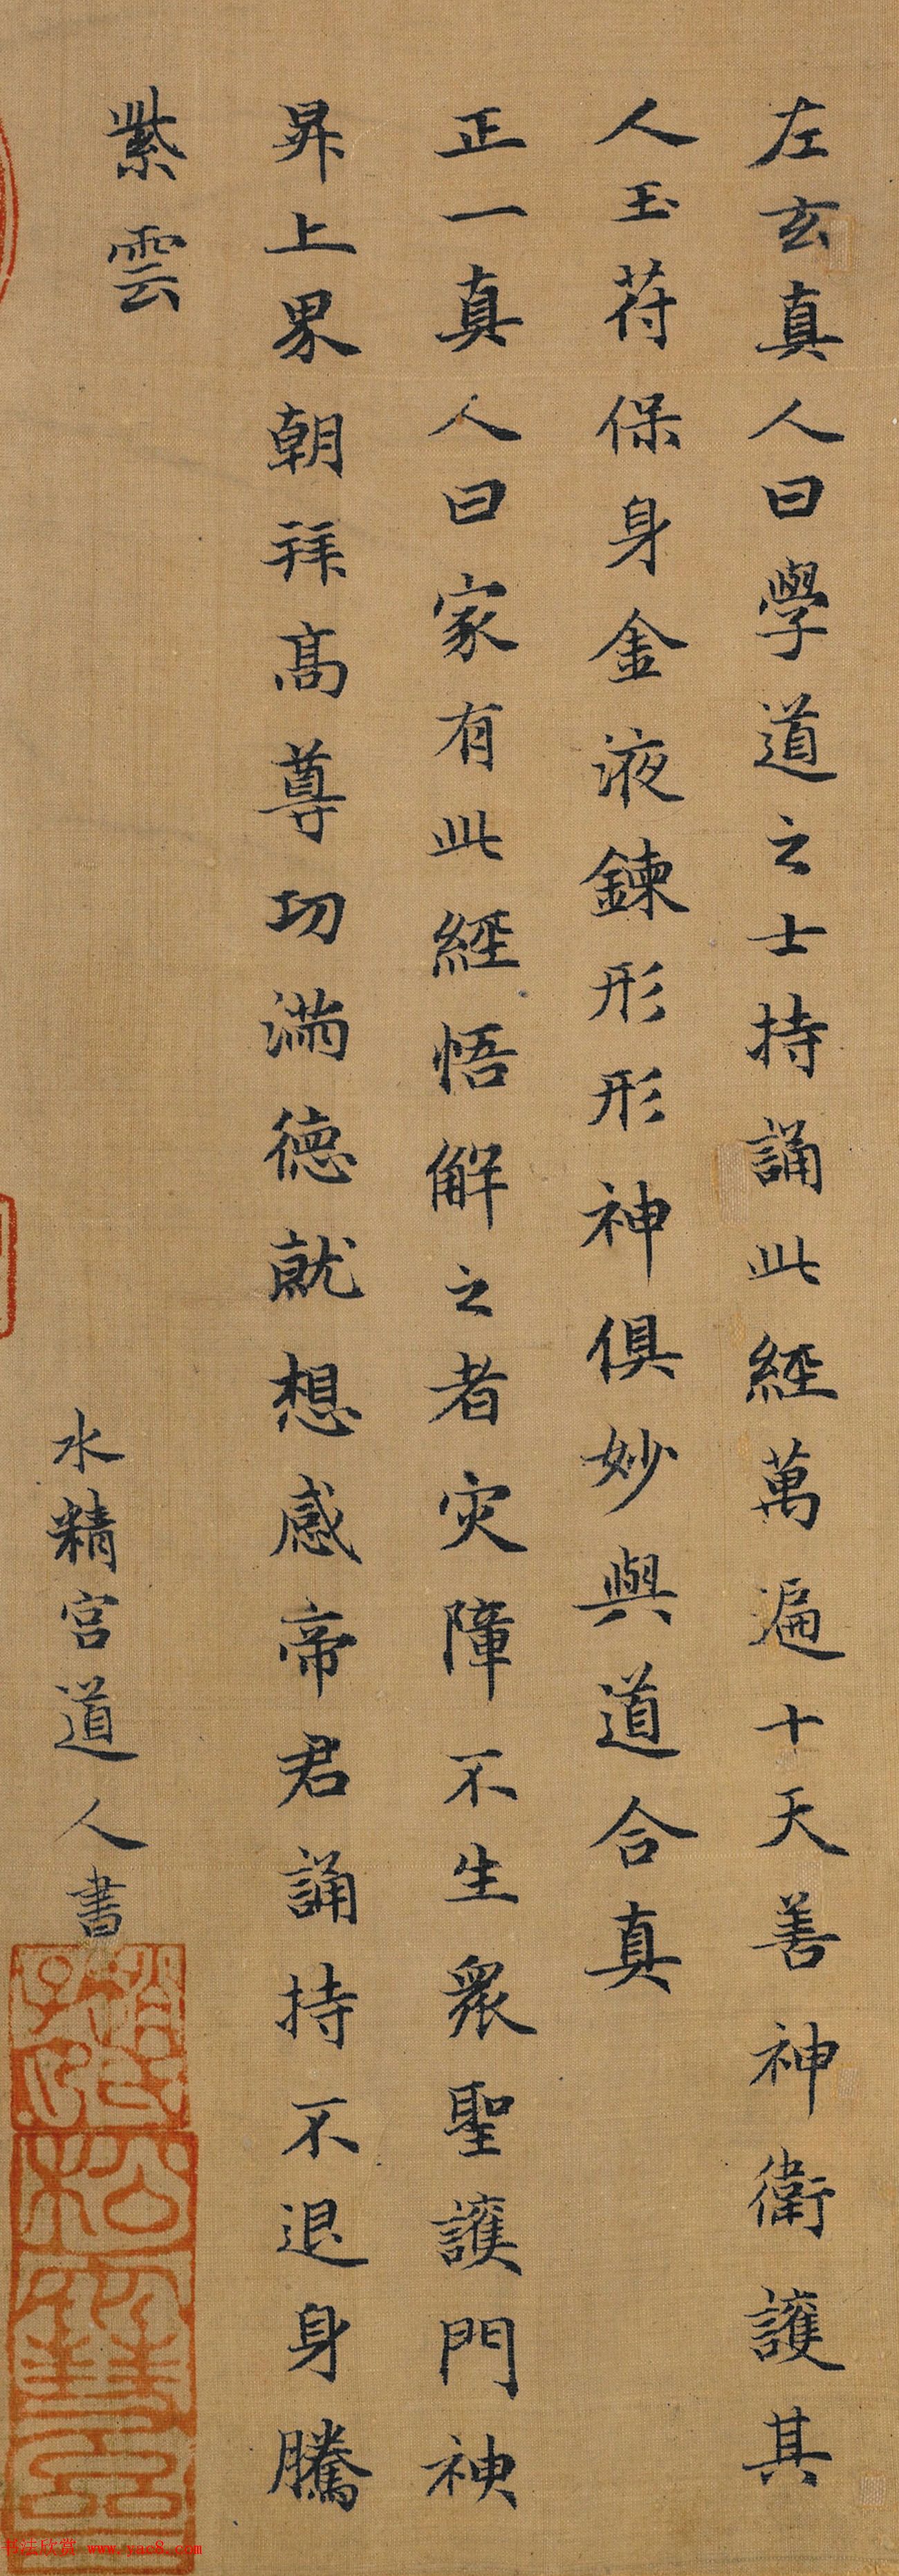 左玄真人曰學道之士持誦此經萬遍十天善神衛護其
人玉苻保身金液鍊形形神俱妙與道合真
正一真人曰家有此經悟解之者灾障不生衆聖護門神
昇上界朝拜高尊功滿德就想感帝君誦持不退身騰
紫雲
水精宮道人書
趙氏子印
松雪齋
书法欣赏 www.yac8.com